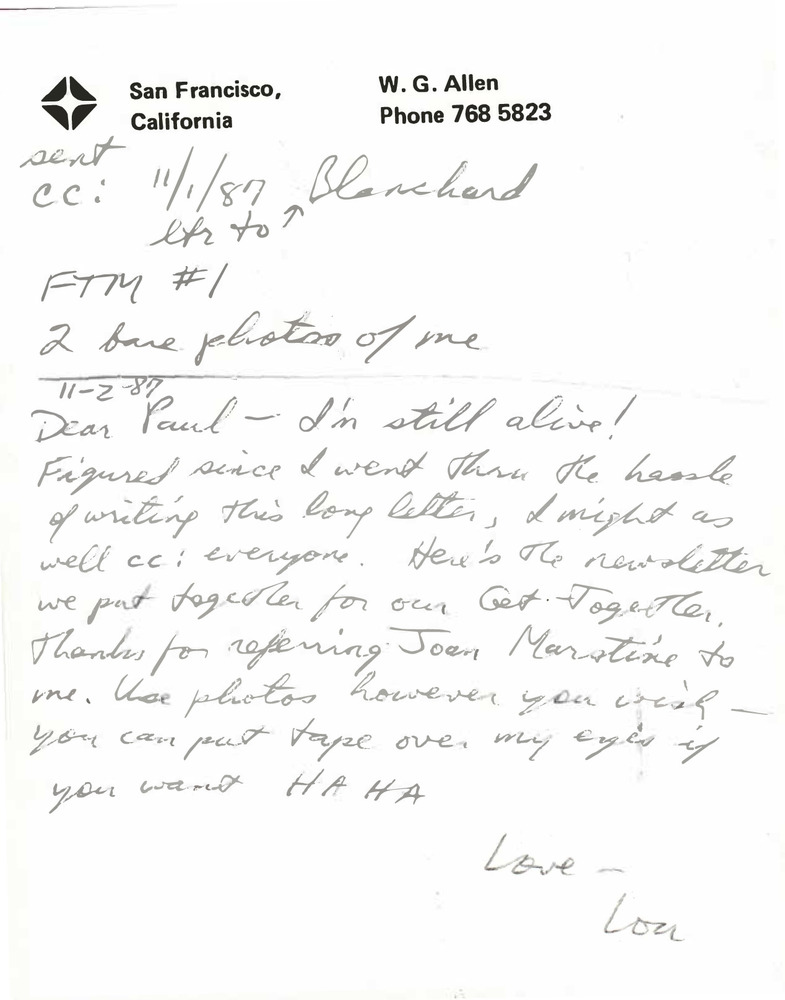 San Francisco,
California
W. G. Allen
Phone 768 5823
sent
cc: 11/1/87 Blanchard
ltr to ↑
FTM #1
2 bare photos of me
11-2-87
Dear Paul — I'm still alive!
Figured since I went thru the hassle
of writing this long letter, I might as
well cc: everyone. Here's the newsletter
we put together for our Get-Together.
Thanks for referring Joan Marstine to
me. Use photos however you wish —
you can put tape over my eyes if
you want HA HA
Love —
Lou